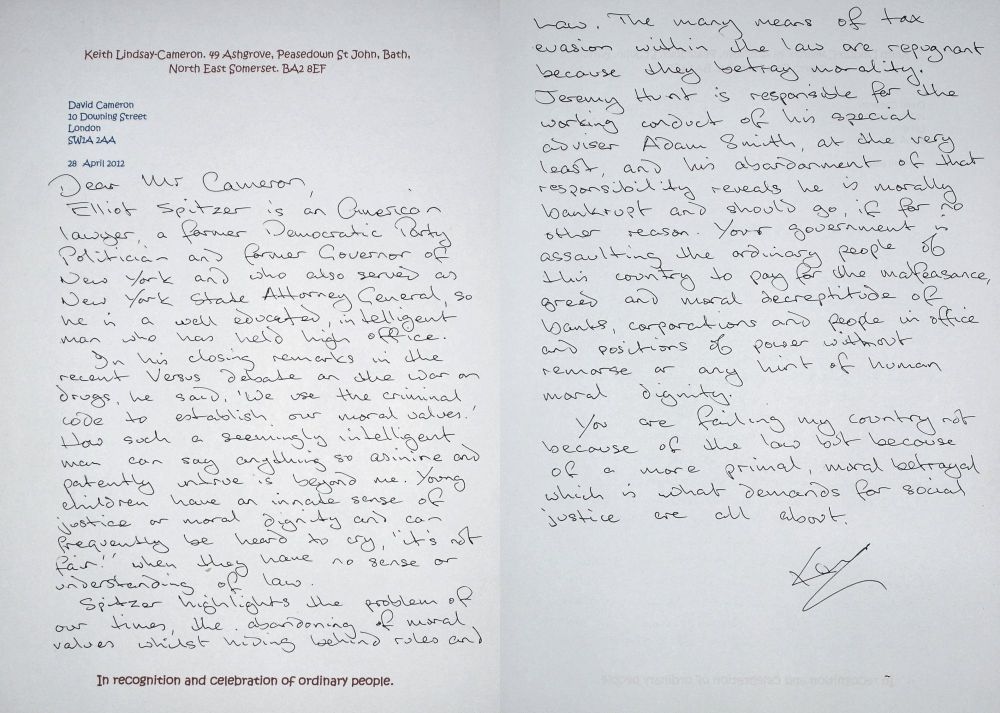 Keith Lindsay-Cameron. 49 Ashgrove, Peasedown St John, Bath,
North East Somerset. BA2 8EF
David Cameron
10 Downing Street
London
SW1A 2AA
28 April 2012
Dear Mr Cameron,
Elliot Spitzer is an American
lawyer, a former Democratic Party
Politician and former Governor of
New York and who also served as
New York State Attorney General, so
he is a well educated, intelligent
man who has held high office.
In his closing remarks in the
recent Versus debate on the war on
drugs, he said, 'We use the criminal
code to establish our moral values.'
How such a seemingly intelligent
man can say anything so asinine and
patently untrue is beyond me. Young
children have an innate sense of
justice or moral dignity and can
frequently be heard to cry, "it's not
fair!" when they have no sense or
understanding of law.
Spitzer highlights the problem of
our times, the abandoning of moral
values whilst hiding behind rules and
In recognition and celebration of ordinary people.
law. The many means of tax
evasion within the law are repugnant
because they betray morality.
Jeremy Hunt is responsible for the
working conduct of his special
adviser Adam Smith, at the very
least, and his abandonment of that
responsibility reveals he is morally
bankrupt and should go, if for no
other reason. Your government is
assaulting the ordinary people of
this country to pay for the malfeasance,
greed and moral decreptitude of
banks, corporations and people in office
and positions of power without
remorse or any hint of human
moral dignity.
You are failing my country not
because of the law but because
of a more primal, moral betrayal
which is what demands for social
justice are all about.